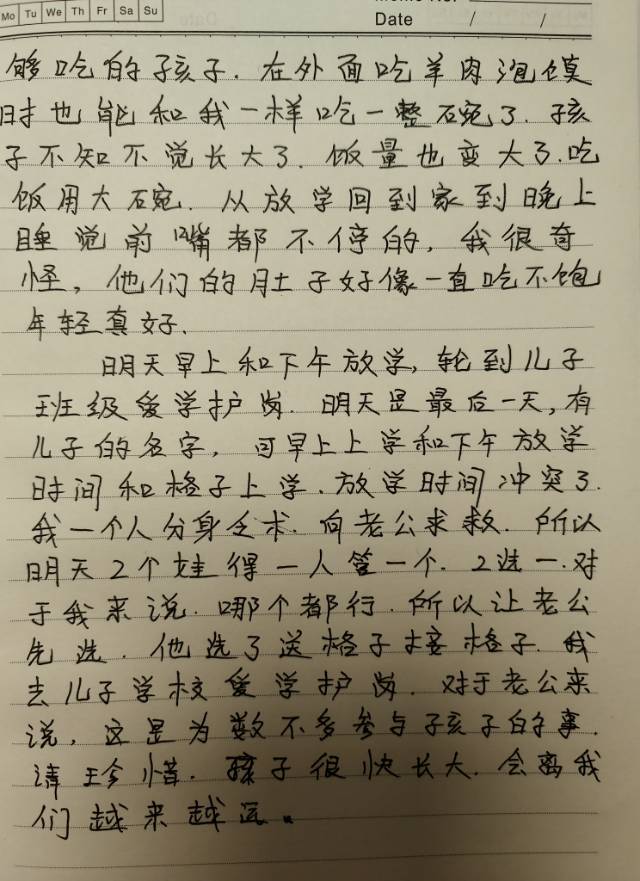 Mo Tu We Th Fr Sa Su
Date / /
够吃的孩子. 在外面吃羊肉泡馍
时也能和我一样吃一整碗了. 孩
子不知不觉长大了. 饭量也变大了. 吃
饭用大碗. 从放学回到家到晚上
睡觉前嘴都不停的, 我很奇
怪, 他们的肚子好像一直吃不饱
年轻真好.
明天早上和下午放学, 轮到儿子
班级爱学护岗. 明天是最后一天, 有
儿子的名字, 可早上上学和下午放学
时间和格子上学. 放学时间冲突了.
我一个人分身乏术. 向老公求救. 所以
明天2个娃得一人管一个. 2选一. 对
于我来说. 哪个都行. 所以让老公
先选. 他选了送格子接格子. 我
去儿子学校爱学护岗. 对于老公来
说, 这是为数不多参与孩子的事.
请珍惜. 孩子很快长大. 会离我
们越来越远。